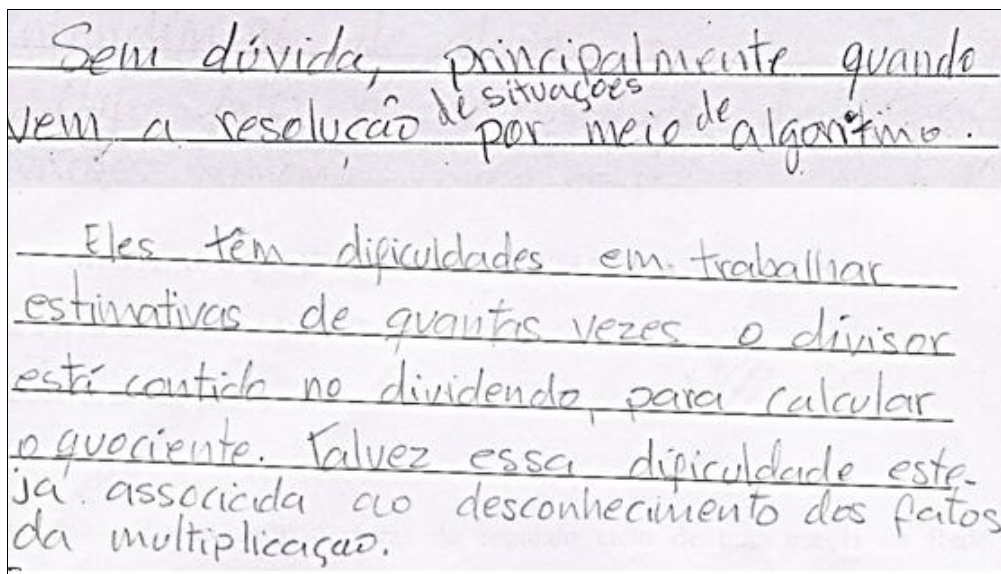 Sem dúvida, principalmente quando
vem a resolução de situações por meio de algorítimo.
Eles têm dificuldades em trabalhar
estimativas de quantas vezes o divisor
está contido no dividendo, para calcular
o quociente. Talvez essa dificuldade este-
ja associada ao desconhecimento dos fatos
da multiplicação.